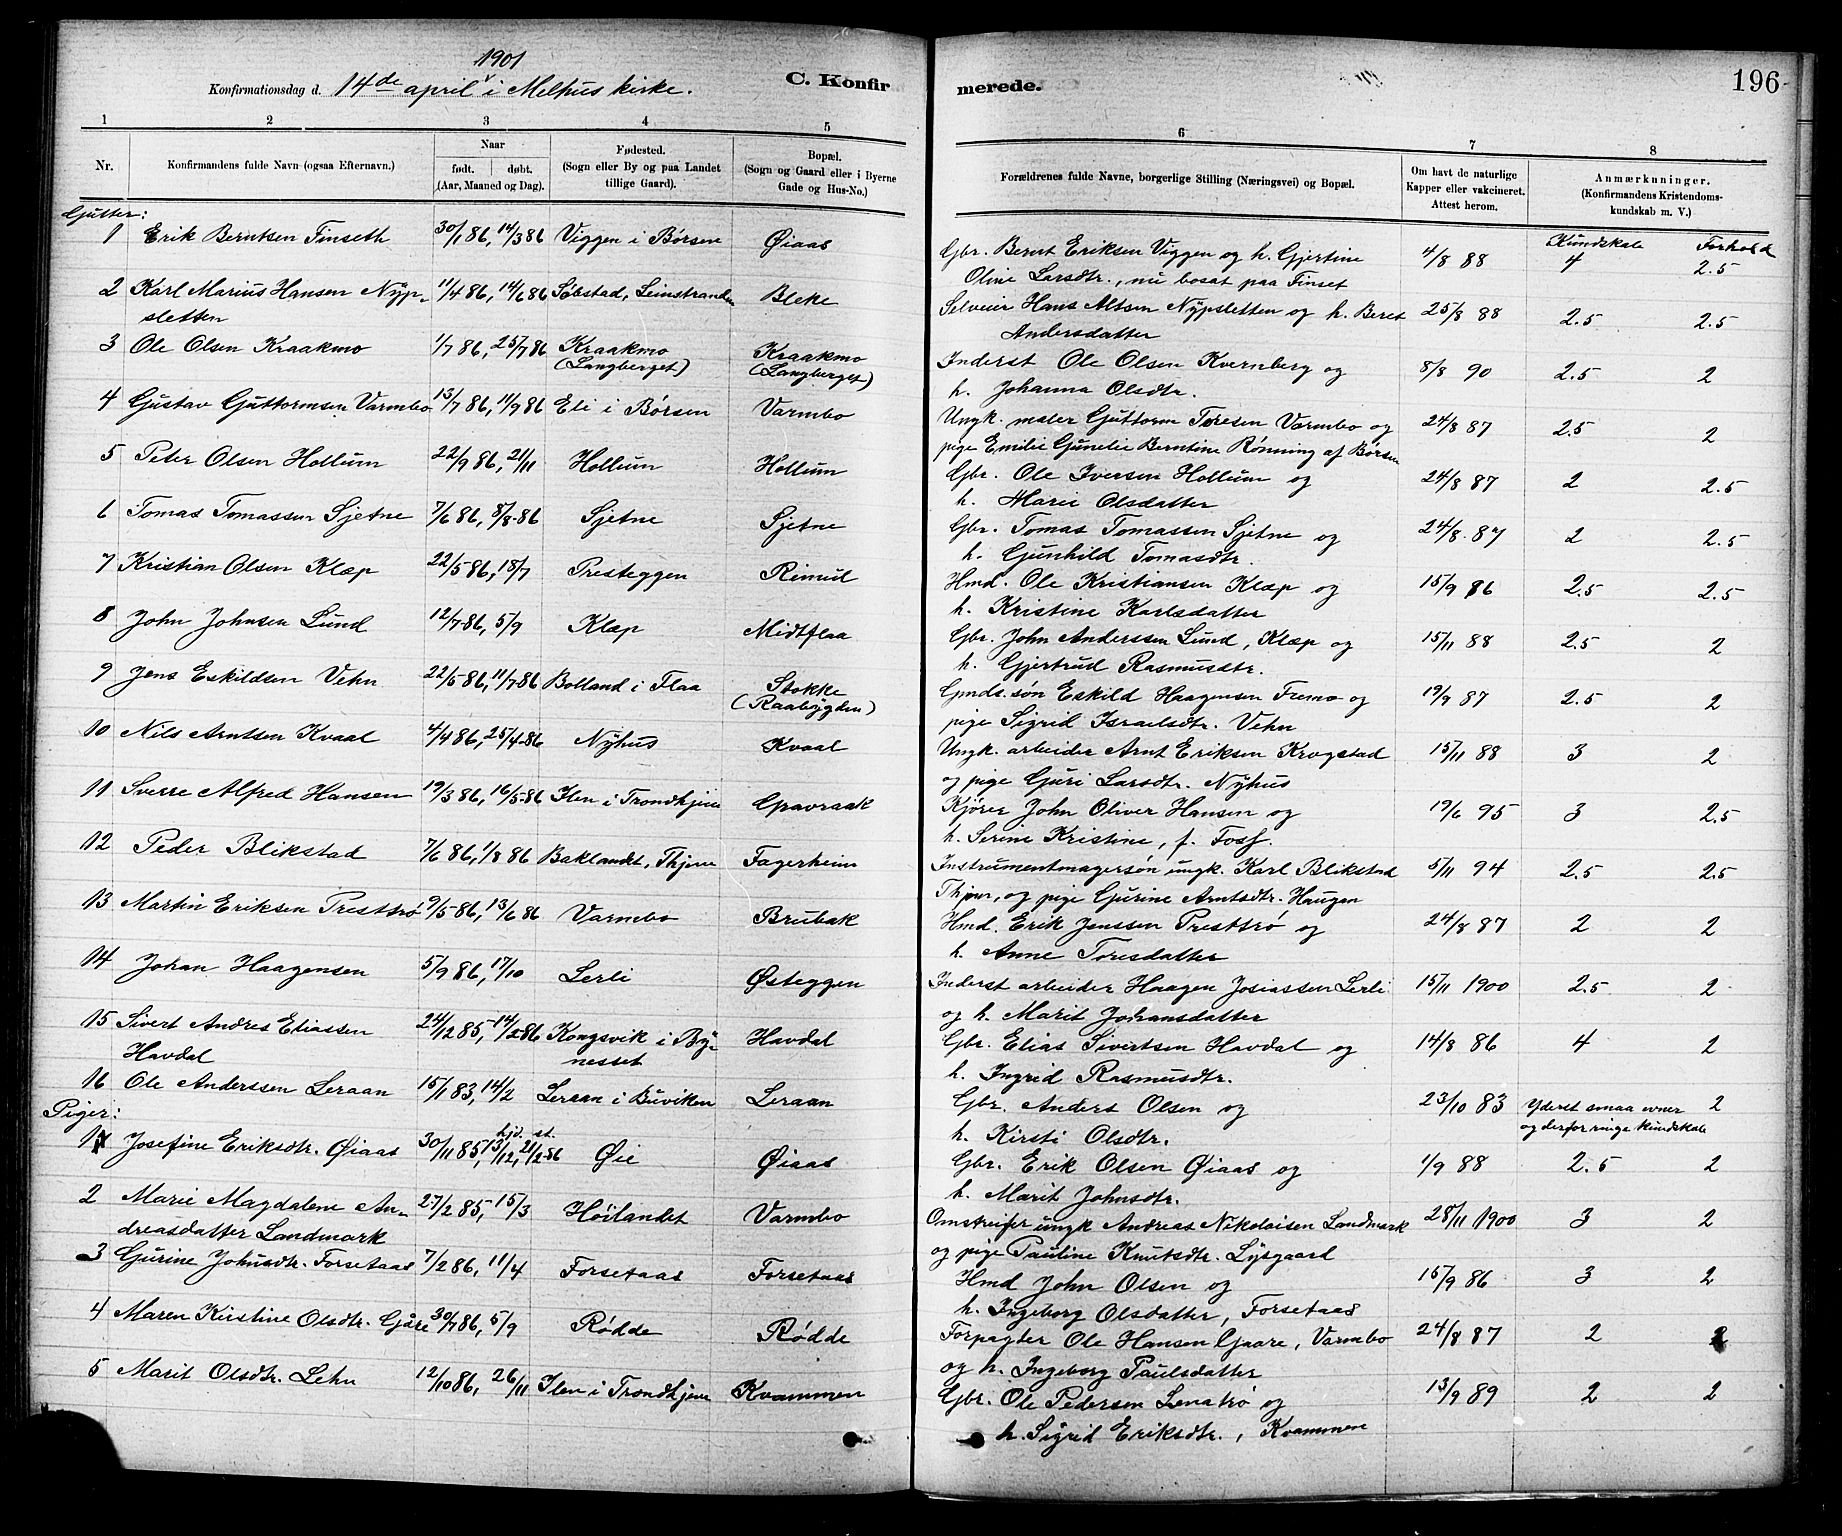 1901
Konfirmationsdag d. 14de april i Melhus kirke.
C. Konfirmerede.
196
1 2 3 4 5 6 7 8
Nr.
Konfirmandens fulde Navn (ogsaa Efternavn.)
Naar
født. døbt.
(Aar, Maaned og Dag).
Fødested.
(Sogn eller By og paa Landet
tillige Gaard).
Bopæl.
(Sogn og Gaard eller i Byerne
Gade og Hus-No.)
Forældrenes fulde Navne, borgerlige Stilling (Næringsvei) og Bopæl.
Om havt de naturlige
Kapper eller vakcineret.
Attest herom.
Anmærkninger.
(Konfirmandens Kristendoms-
kundskab m. V.)
Gutter:
Kundskab Forhold
1 Erik Berntsen Finseth 30/1 86, 14/3 86 Viggen i Børsen Øiaas Gbr. Bernt Eriksen Viggen og h. Gjertine 4/8 88 4 2.5
Oline Larsdtr., nu bosat paa Finset
2 Karl Marius Hansen Nyp- 11/4 86, 14/6 86 Søbstad, Leinstranden Bleke Selveier Hans Altsen Nypsletten og h. Beret 25/8 88 2.5 2.5
sletten Andersdatter
3 Ole Olsen Kraakmo 1/7 86, 25/7 86 Kraakmo Kraakmo Inderst Ole Olsen Kvernberg og 8/8 90 2.5 2
(Langberget) (Langberget) h. Johanna Olsdtr.
4 Gustav Guttormsen Varmbo 13/7 86, 11/9 86 Eli i Børsen Varmbo Ungk. maler Guttorm Toresen Varmbo og 24/8 87 2.5 2
pige Emilie Gunelie Berntine Rønning af Børsen
5 Peter Olsen Hollum 22/9 86, 21/11 Hollum Hollum Gbr. Ole Iversen Hollum og 24/8 87 2 2.5
h. Marie Olsdatter
6 Tomas Tomassen Sjetne 7/6 86, 8/8 86 Sjetne Sjetne Gbr. Tomas Tomassen Sjetne og 24/8 87 2 2.5
h. Gunhild Tomasdtr.
7 Kristian Olsen Klæp 22/5 86, 18/7 Presteggen Rimul Hmd. Ole Kristiansen Klæp og 15/9 86 2.5 2.5
h. Kristine Karlsdatter
8 John Johnsen Lund 12/7 86, 5/9 Klæp Midtflaa Gbr. John Anderssen Lund, Klæp og 15/11 88 2.5 2
h. Gjertrud Rasmusdtr.
9 Jens Eskildsen Vehn 22/5 86, 11/7 86 Bolland i Flaa Stokke Gmds. søn Eskild Haagensen Fremo og 19/9 87 2.5 2
(Raabygden) pige Sigrid Israelsdtr. Vehn
10 Nils Arntsen Kvaal 4/4 86, 25/4 86 Nyhus Kvaal Ungk. arbeider Arnt Eriksen Krogstad 15/11 88 3 2
og pige Guri Larsdtr. Nyhus
11 Sverre Alfred Hansen 19/3 86, 16/5 86 Ilen i Trondhjem Gravraak Kjører John Oliver Hansen og 19/6 95 3 2.5
h. Serine Kristine, f. Foss.
12 Peder Blikstad 7/6 86, 1/8 86 Baklandet, Thjem Fagerheim Instrumentmagersøn ungk. Karl Blikstad 5/11 94 2.5 2.5
Thjem, og pige Gurine Arntsdtr. Haugen
13 Martin Eriksen Presttrø 9/5 86, 13/6 86 Varmbo Brubak Hmd. Erik Jenssen Presttrø og 24/8 87 2 2
h. Anne Toresdatter
14 Johan Haagensen 5/9 86, 17/10 Lerli Østeggen Inderst arbeider Haagen Josiassen Lerli 15/11 1900 2.5 2
og h. Marit Johansdatter
15 Sivert Andres Eliassen 24/12 85, 14/2 86 Kongsvik i By- Havdal Gbr. Elias Sivertsen Havdal og 14/8 86 4 2
Havdal nesset h. Ingrid Rasmusdtr.
16 Ole Anderssen Leraan 15/1 83, 14/2 Leraan i Buviken Leraan Gbr. Anders Olsen og 23/10 83 Yderst smaa evner 2
h. Kirsti Olsdtr. og derfor ringe kundskab
Piger:
hjd. st.
1 Josefine Eriksdtr. Øiaas 30/11 85, 13/12, 21/2 86 Øie Øiaas Gbr. Erik Olsen Øiaas og 1/9 88 2.5 2
h. Marit Johnsdtr.
2 Marie Magdalene An- 27/2 85, 15/3 Høilandet Varmbo Omstreifer ungk Andreas Nikolaisen Landmark 28/11 1900 3 2
dreasdatter Landmark og pige Pauline Knutsdtr. Lysgaard
3 Gurine Johnsdtr. Forsetaas 7/2 86, 11/4 Forsetaas Forsetaas Hmd John Olsen og 15/9 86 3 2
h. Ingeborg Olsdatter, Forsetaas
4 Maren Kirstine Olsdtr. Gåre 30/7 86, 5/9 Rødde Rødde Forpagter Ole Hansen Gaare, Varmbo 24/8 87 2 2
og h. Ingeborg Paulsdatter
5 Marit Olsdtr. Lehn 12/10 86, 26/11 Ilen i Trondhjem Kvammen Gbr. Ole Pedersen Lenatrø og 13/9 89 2 2
h. Sigrid Eriksdtr., Kvammen